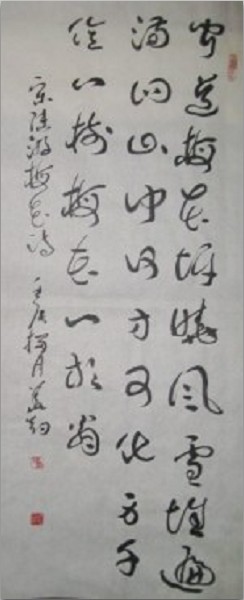 闻道梅花坼曉風雪堆遍
满四山中何方可化身千
億一树梅花一放翁
宋陆游梅花诗 壬辰梅月